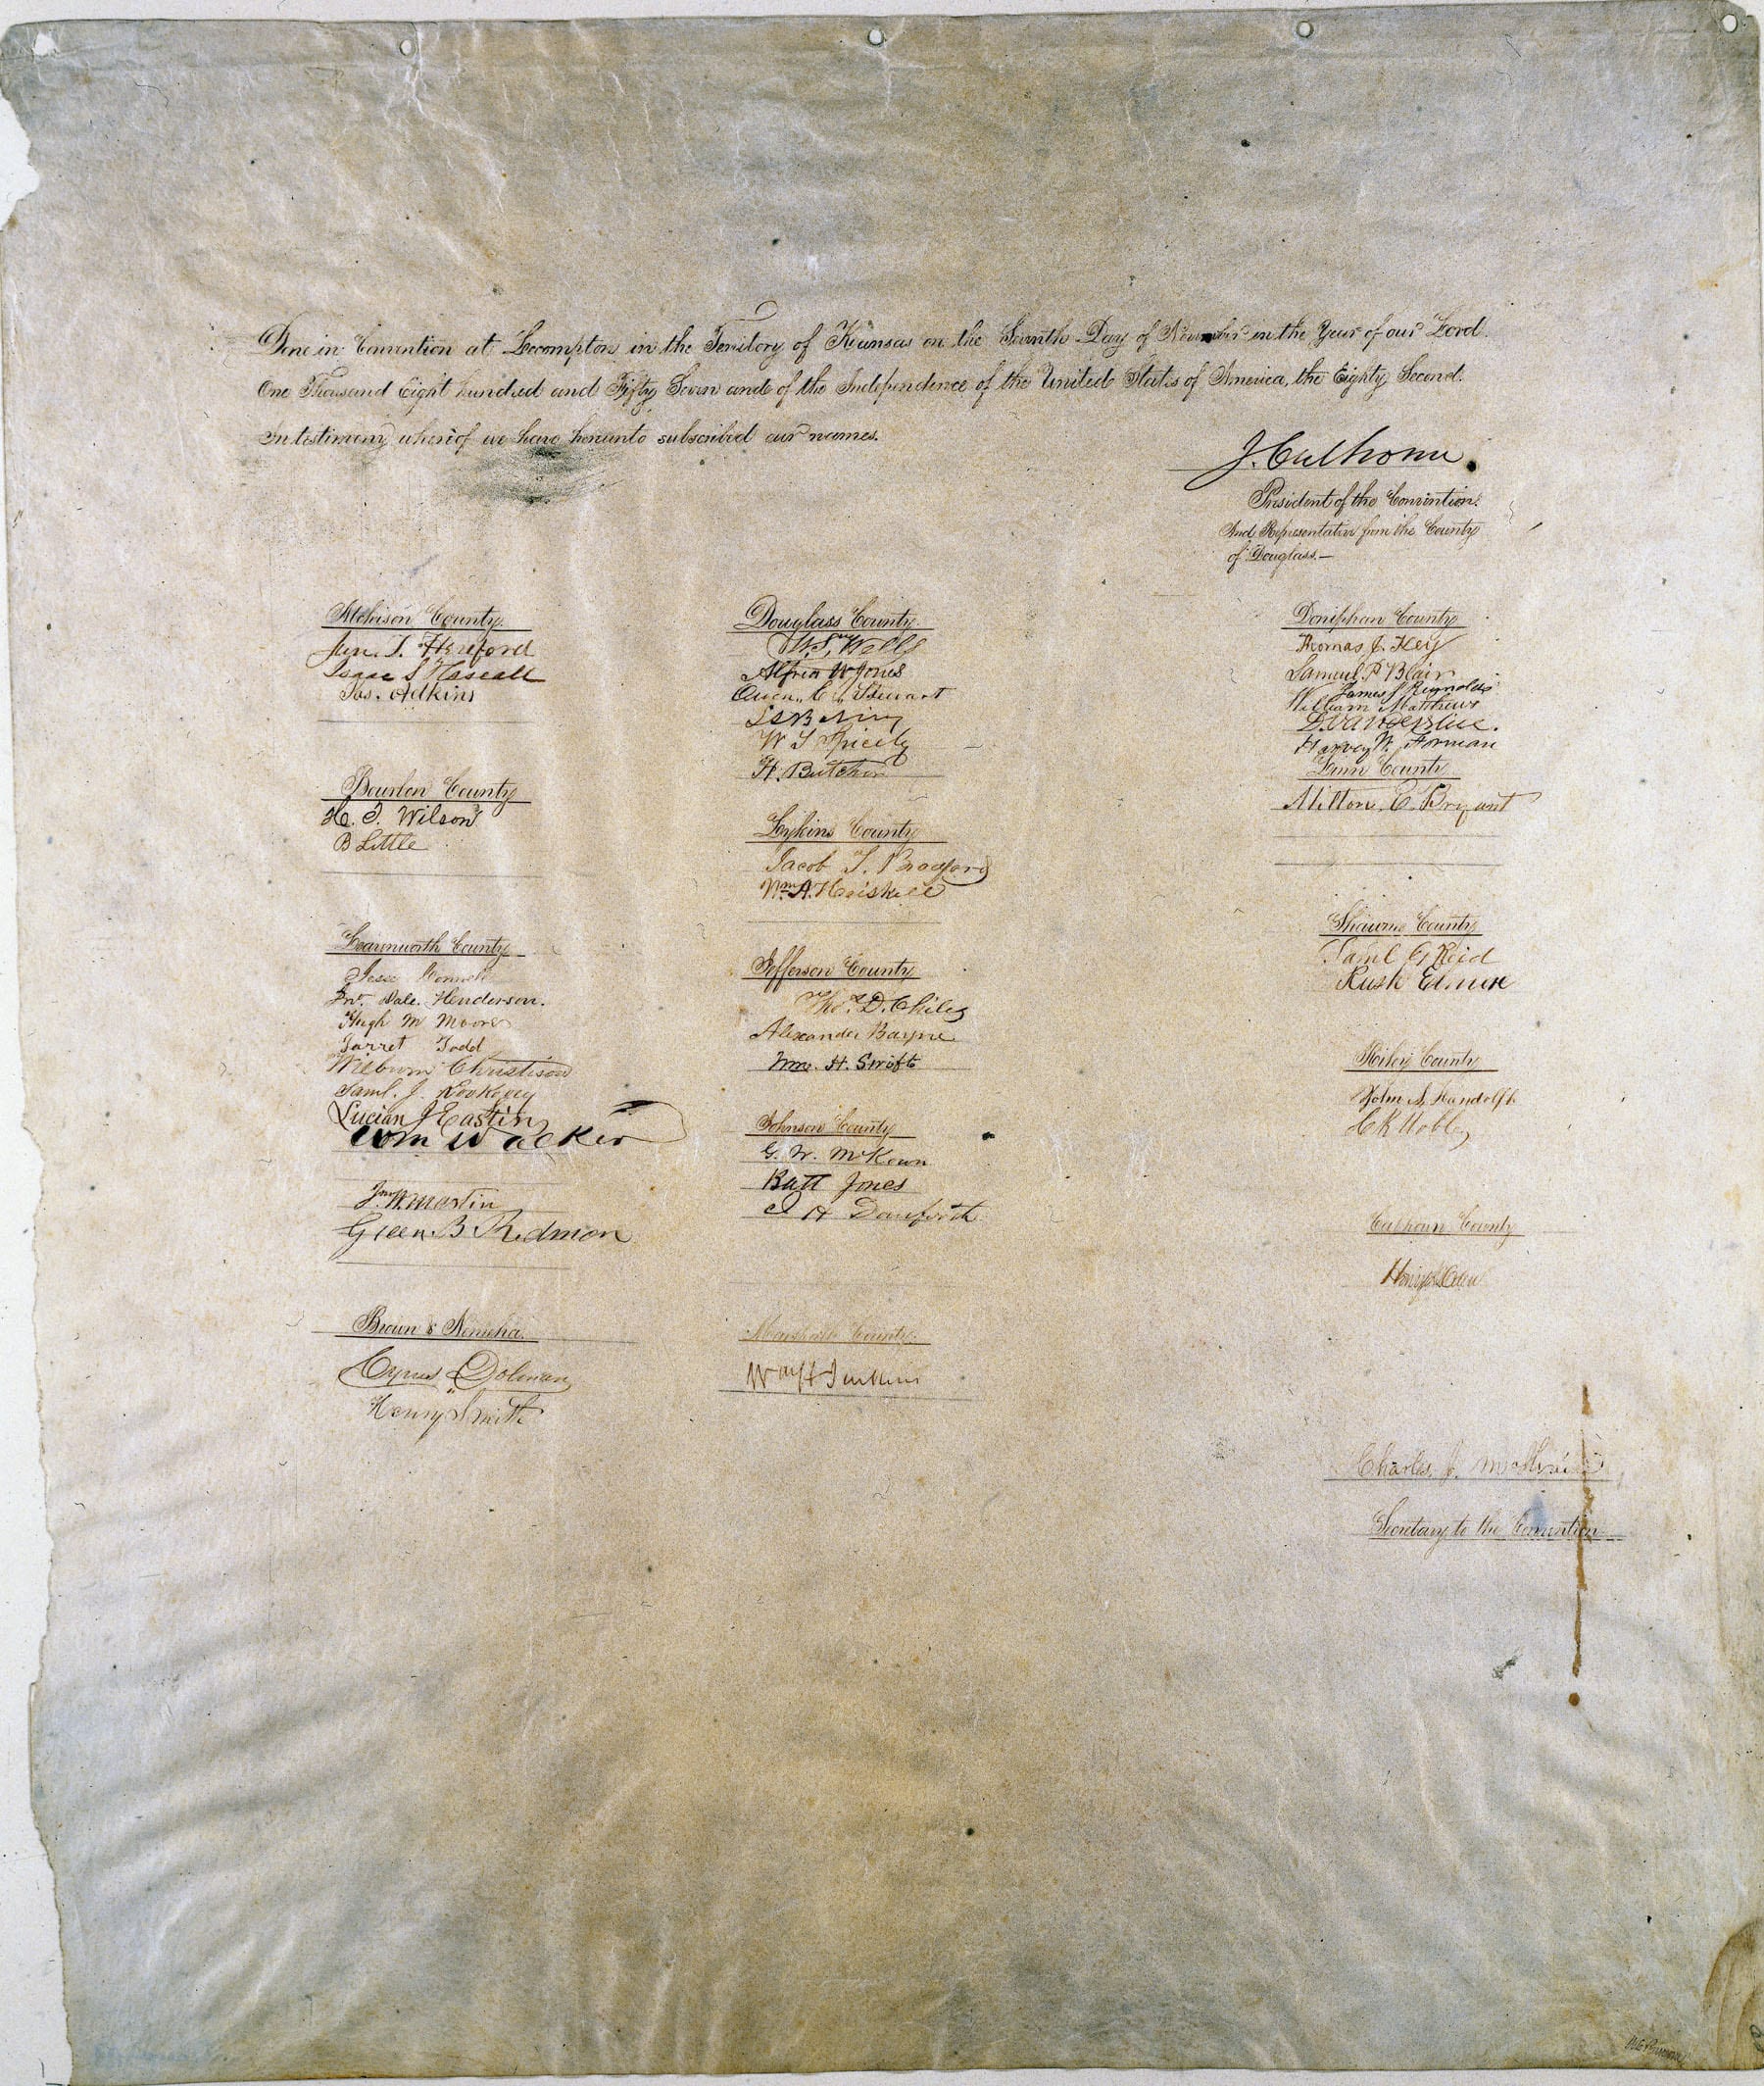 Done in Convention at Lecompton in the Territory of Kansas on the Seventh Day of November in the Year of our Lord
One Thousand Eight hundred and Fifty Seven and of the Independence of the United States of America, the Eighty Second.
In testimony whereof we have hereunto subscribed our names.
J. Calhoun
President of the Convention
And Representative from the County
of Douglass.—
Atchison County
Jun. T. Hereford
Isaac S Hascall
Jas. Adkins
Bourbon County
H. T. Wilson
B Little
Leavenworth County
Jesse Connell
Jno. Dale. Henderson.
Hugh M Moore
Jarret Todd
Wilburn Christison
Saml. J. Kookogey
Lucian J Eastin
Wm Walker
Jno W. Martin
Green. B. Redmon
Brown & Nemeha.
Cyrus Dolman
Henry Smith
Douglass County
W. S. Wells
Alfred W Jones
Owen. C. Stewart
W T Spicely
H. Butcher
Lykins County
Jacob T. Bradford
Wm A. Heiskell
Jefferson County
Tho.s D. Childs
Alexander Bayne
Wm. H. Swift
Johnson County
G. W. McKown
Batt Jones
J H Danforth
Marshall County.
W H Jenkins
Doniphan County
Thomas J. Key
Samuel. P Blair
James J Reynolds
William Matthews
D. Vanderslice.
Harvey W. Forman
Linn County
Milton. E. Bryant
Shawne County
Saml G Reid
Rush Elmore
Riley County
John S. Randolph
C K Mobley
Calhoun County
Henry D Oden
Charles. J. McIlvaine
Secretary to the Convention